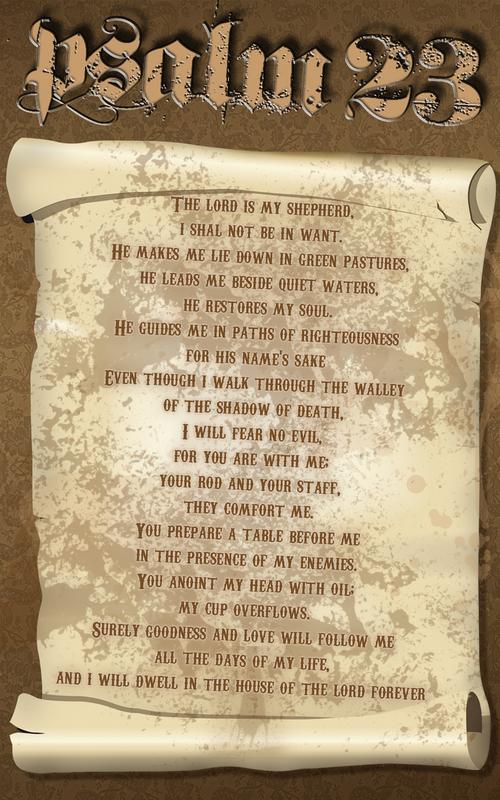 psalm 23
The lord is my shepherd,
I shal not be in want.
He makes me lie down in green pastures,
he leads me beside quiet waters,
he restores my soul.
He guides me in paths of righteousness
for his name's sake
Even though I walk through the walley
of the shadow of death,
I will fear no evil,
for you are with me;
your rod and your staff,
they comfort me.
You prepare a table before me
in the presence of my enemies.
You anoint my head with oil;
my cup overflows.
Surely goodness and love will follow me
all the days of my life,
and I will dwell in the house of the lord forever